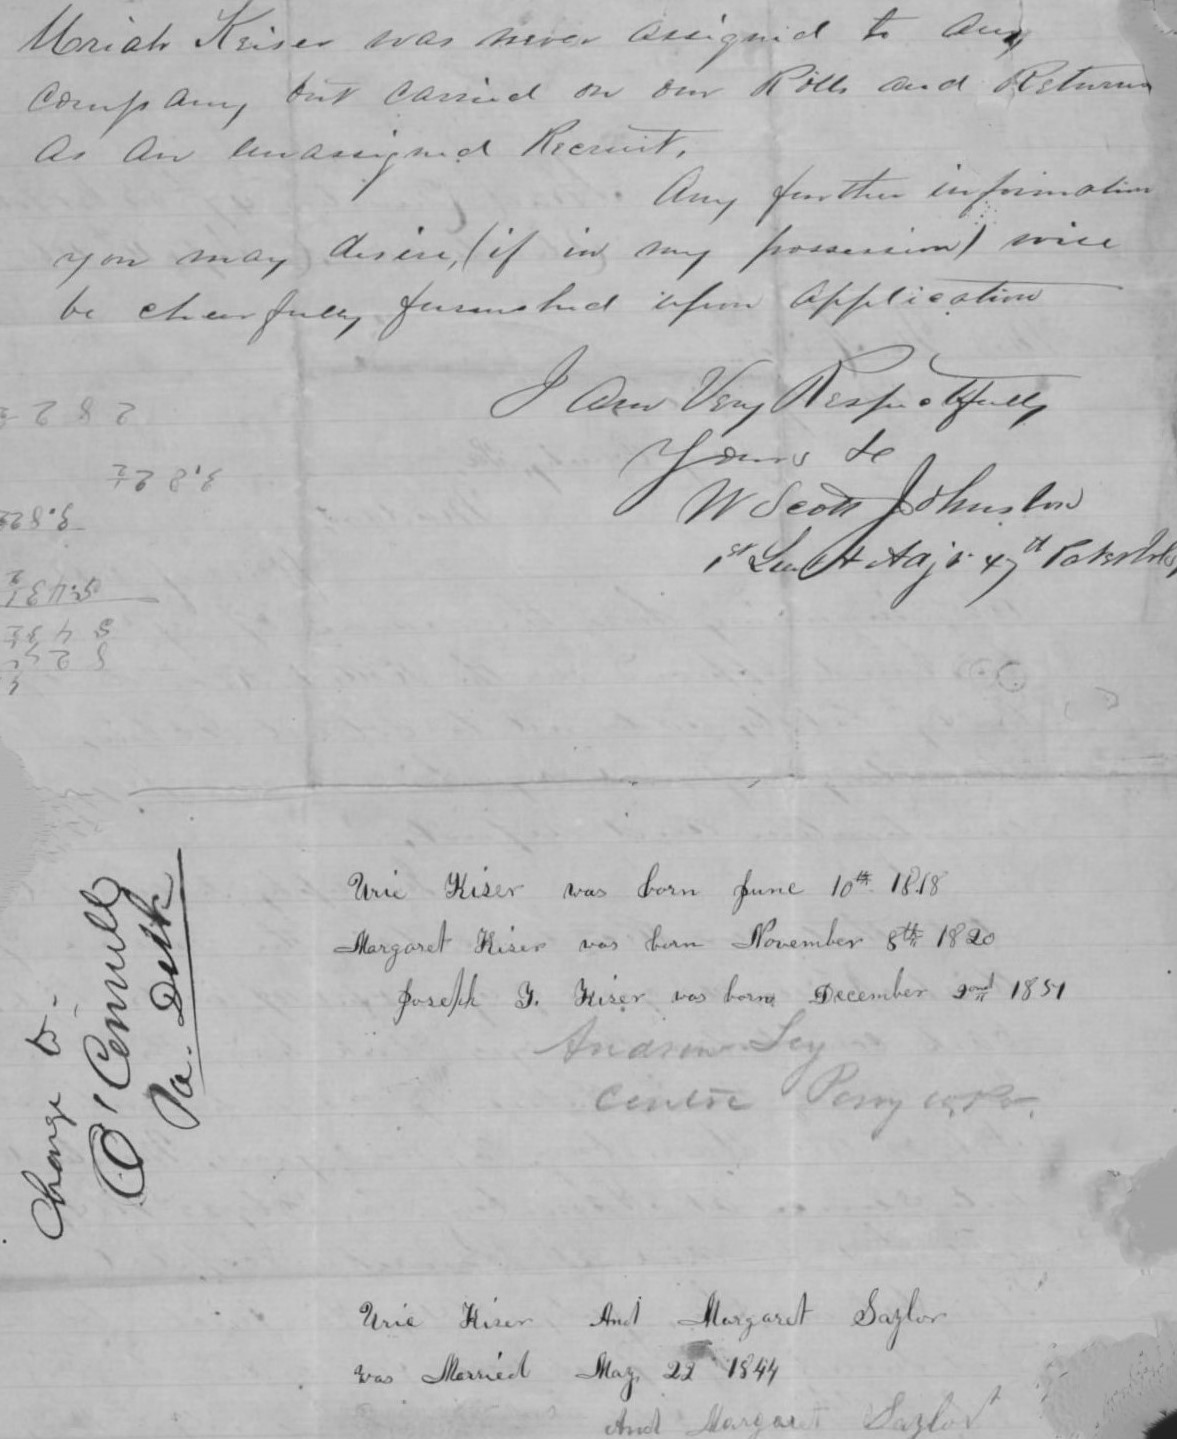 Uriah Keiser was never assigned to any
company but carried on our Rolls and Returns
as an unassigned Recruit.
Any further information
you may desire, (if in my possession) will
be cheerfully furnished upon application
I am Very Respectfully
Yours &c
W Scott Johnston
1st Lieut & Adjt 47th
Change to-
Pa. Desk
Urie Kiser was born June 10th 1818
Margaret Kiser was born November 8th 1820
Joseph Y. Kiser was born December 2ond 1851
Andrew Loy
Centre Perry co, Pa.
Urie Kiser And Margaret Saylor
was Married May 22 1844
And Margaret Saylor